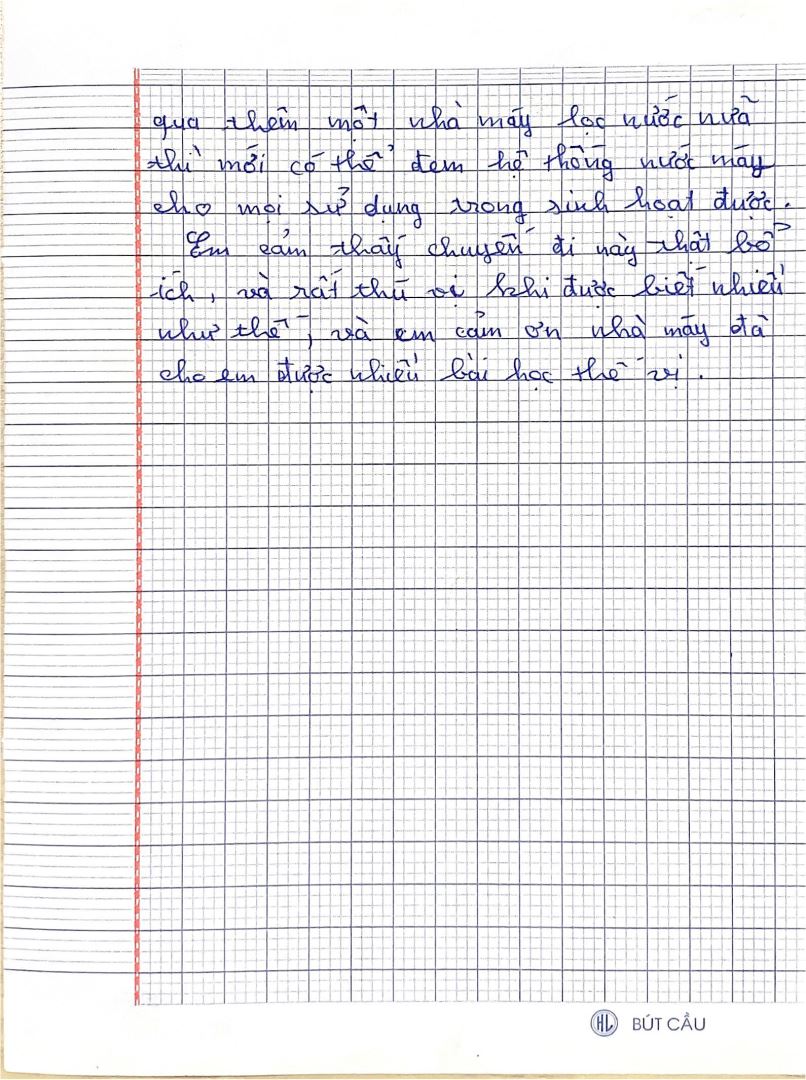 qua thêm một nhà máy lọc nước nữa
thì mới có thể đem hệ thống nước máy
cho mọi sử dụng trong sinh hoạt được.
Em cảm thấy chuyến đi này thật bổ
ích, và rất thú vị khi được biết nhiều
như thế, và em cảm ơn nhà máy đã
cho em được nhiều bài học thế vị.
HL BÚT CẦU